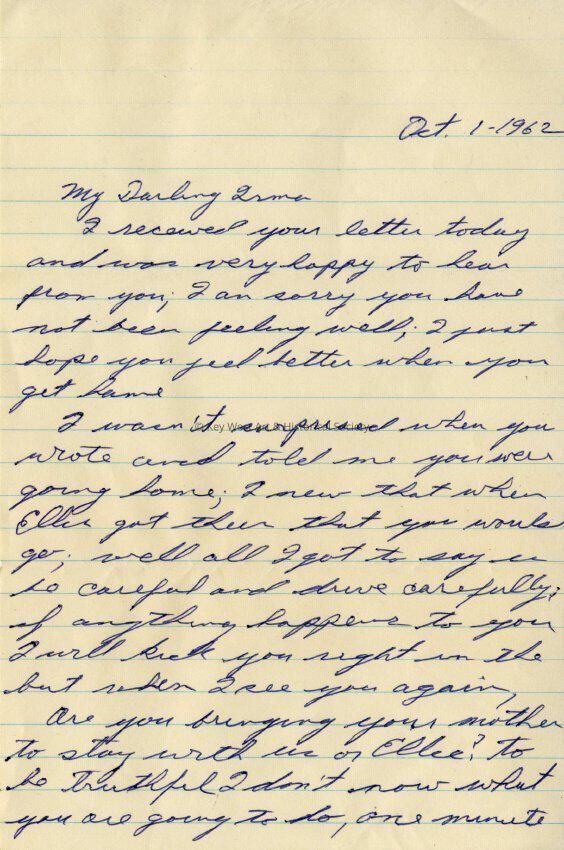 Oct. 1-1962
My Darling Irma
I received your letter today
and was very happy to hear
from you; I am sorry you have
not been feeling well; I just
hope you feel better when you
get home
I wasn't surprised when you
© Key West Art & Historical Society
wrote and told me you were
going home; I new that when
Ellie got their that you would
go; well all I got to say is
be careful and drive carefully;
if anything happens to you
I will kick you right in the
but when I see you again,
Are you bringing your mother
to stay with us or Ellie? to
be Truthful I don't now what
you are going to do, one minute